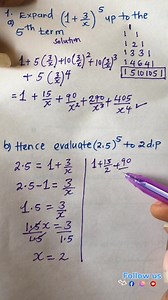 1. Expand (1 + 3/x)^5 up to the
5th term
Solution
1
1 1
1 2 1
1 3 3 1
1 4 6 4 1
1 5 10 10 5 1
1 + 5(3/x) + 10(3/x)^2 + 10(3/x)^3
+ 5(3/x)^4
= 1 + 15/x + 90/x^2 + 290/x^3 + 405/x^4 ✓
b) Hence evaluate (2.5)^5 to 2 d.p
2.5 = 1 + 3/x
2.5 - 1 = 3/x
1.5 = 3/x
1.5x/1.5 = 3/1.5
x = 2
1 + 15/2 + 90
Follow us